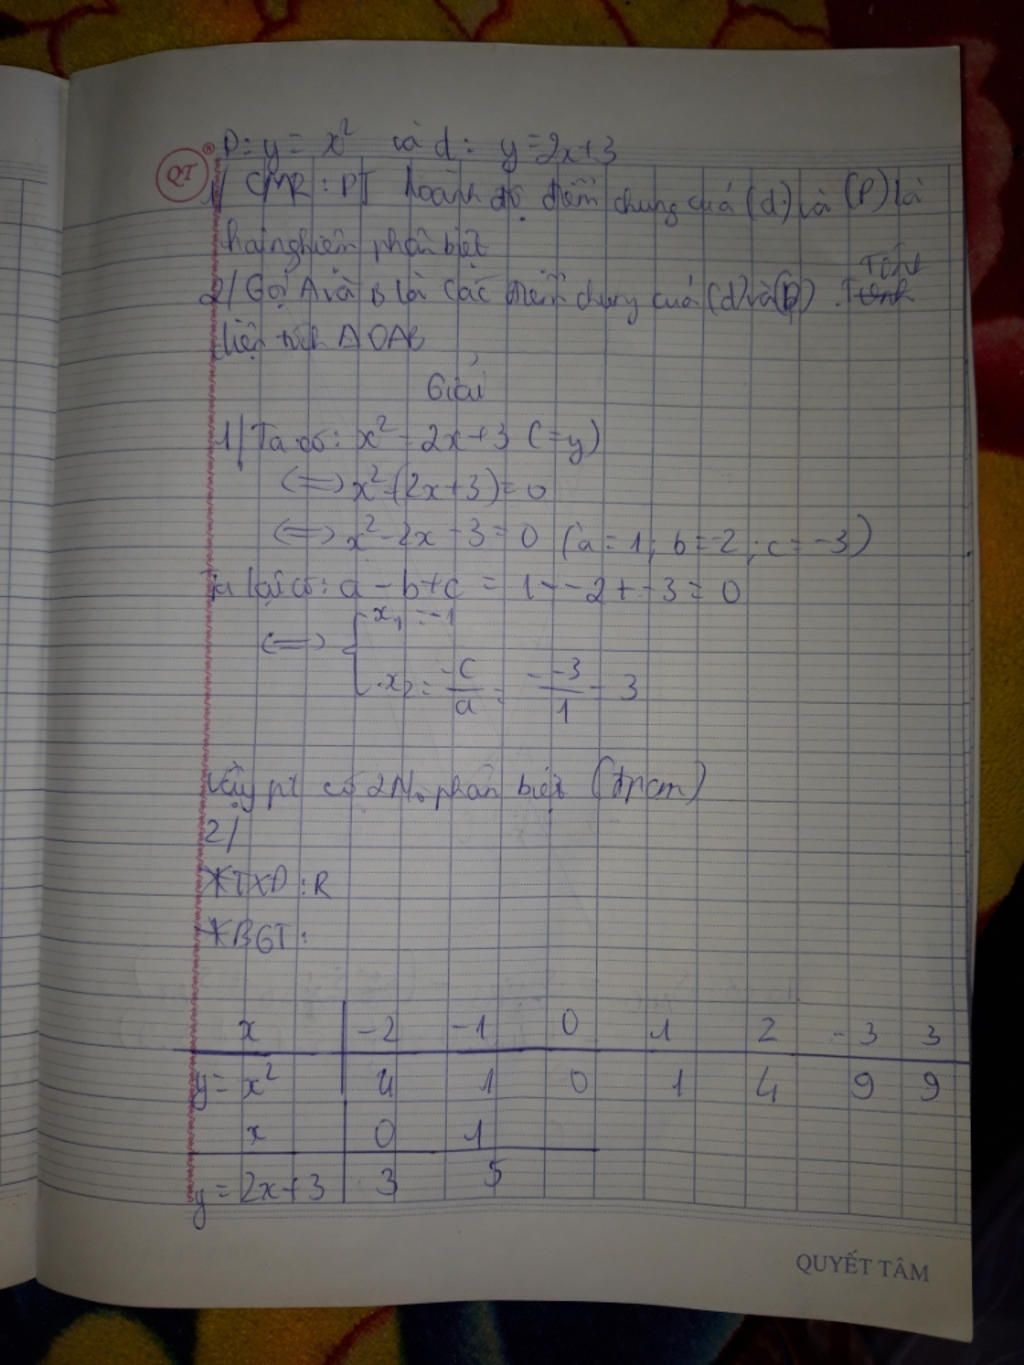 QT
P: y = x² và d: y = 2x+3
1/ CMR: PT hoành độ điểm chung của (d) và (P) là
hai nghiệm phân biệt
Tính
2/ Gọi A và B là các điểm chung của (d) và (P).
diện tích ΔOAB
Giải
1/ Ta có: x² = 2x+3 (=y)
<=> x²-(2x+3)=0
<=> x²-2x-3=0 (a=1; b=-2; c=-3)
Ta lại có: a-b+c = 1--2+-3=0
<=> { x₁ = -1
x₂ = -c/a = - -3/1 = 3
Vậy pt có 2 No phân biệt (đpcm)
2/
*TXD: R
*BGT:
x -2 -1 0 1 2 -3 3
y=x² 4 1 0 1 4 9 9
x 0 1
y=2x+3 3 5
QUYẾT TÂM